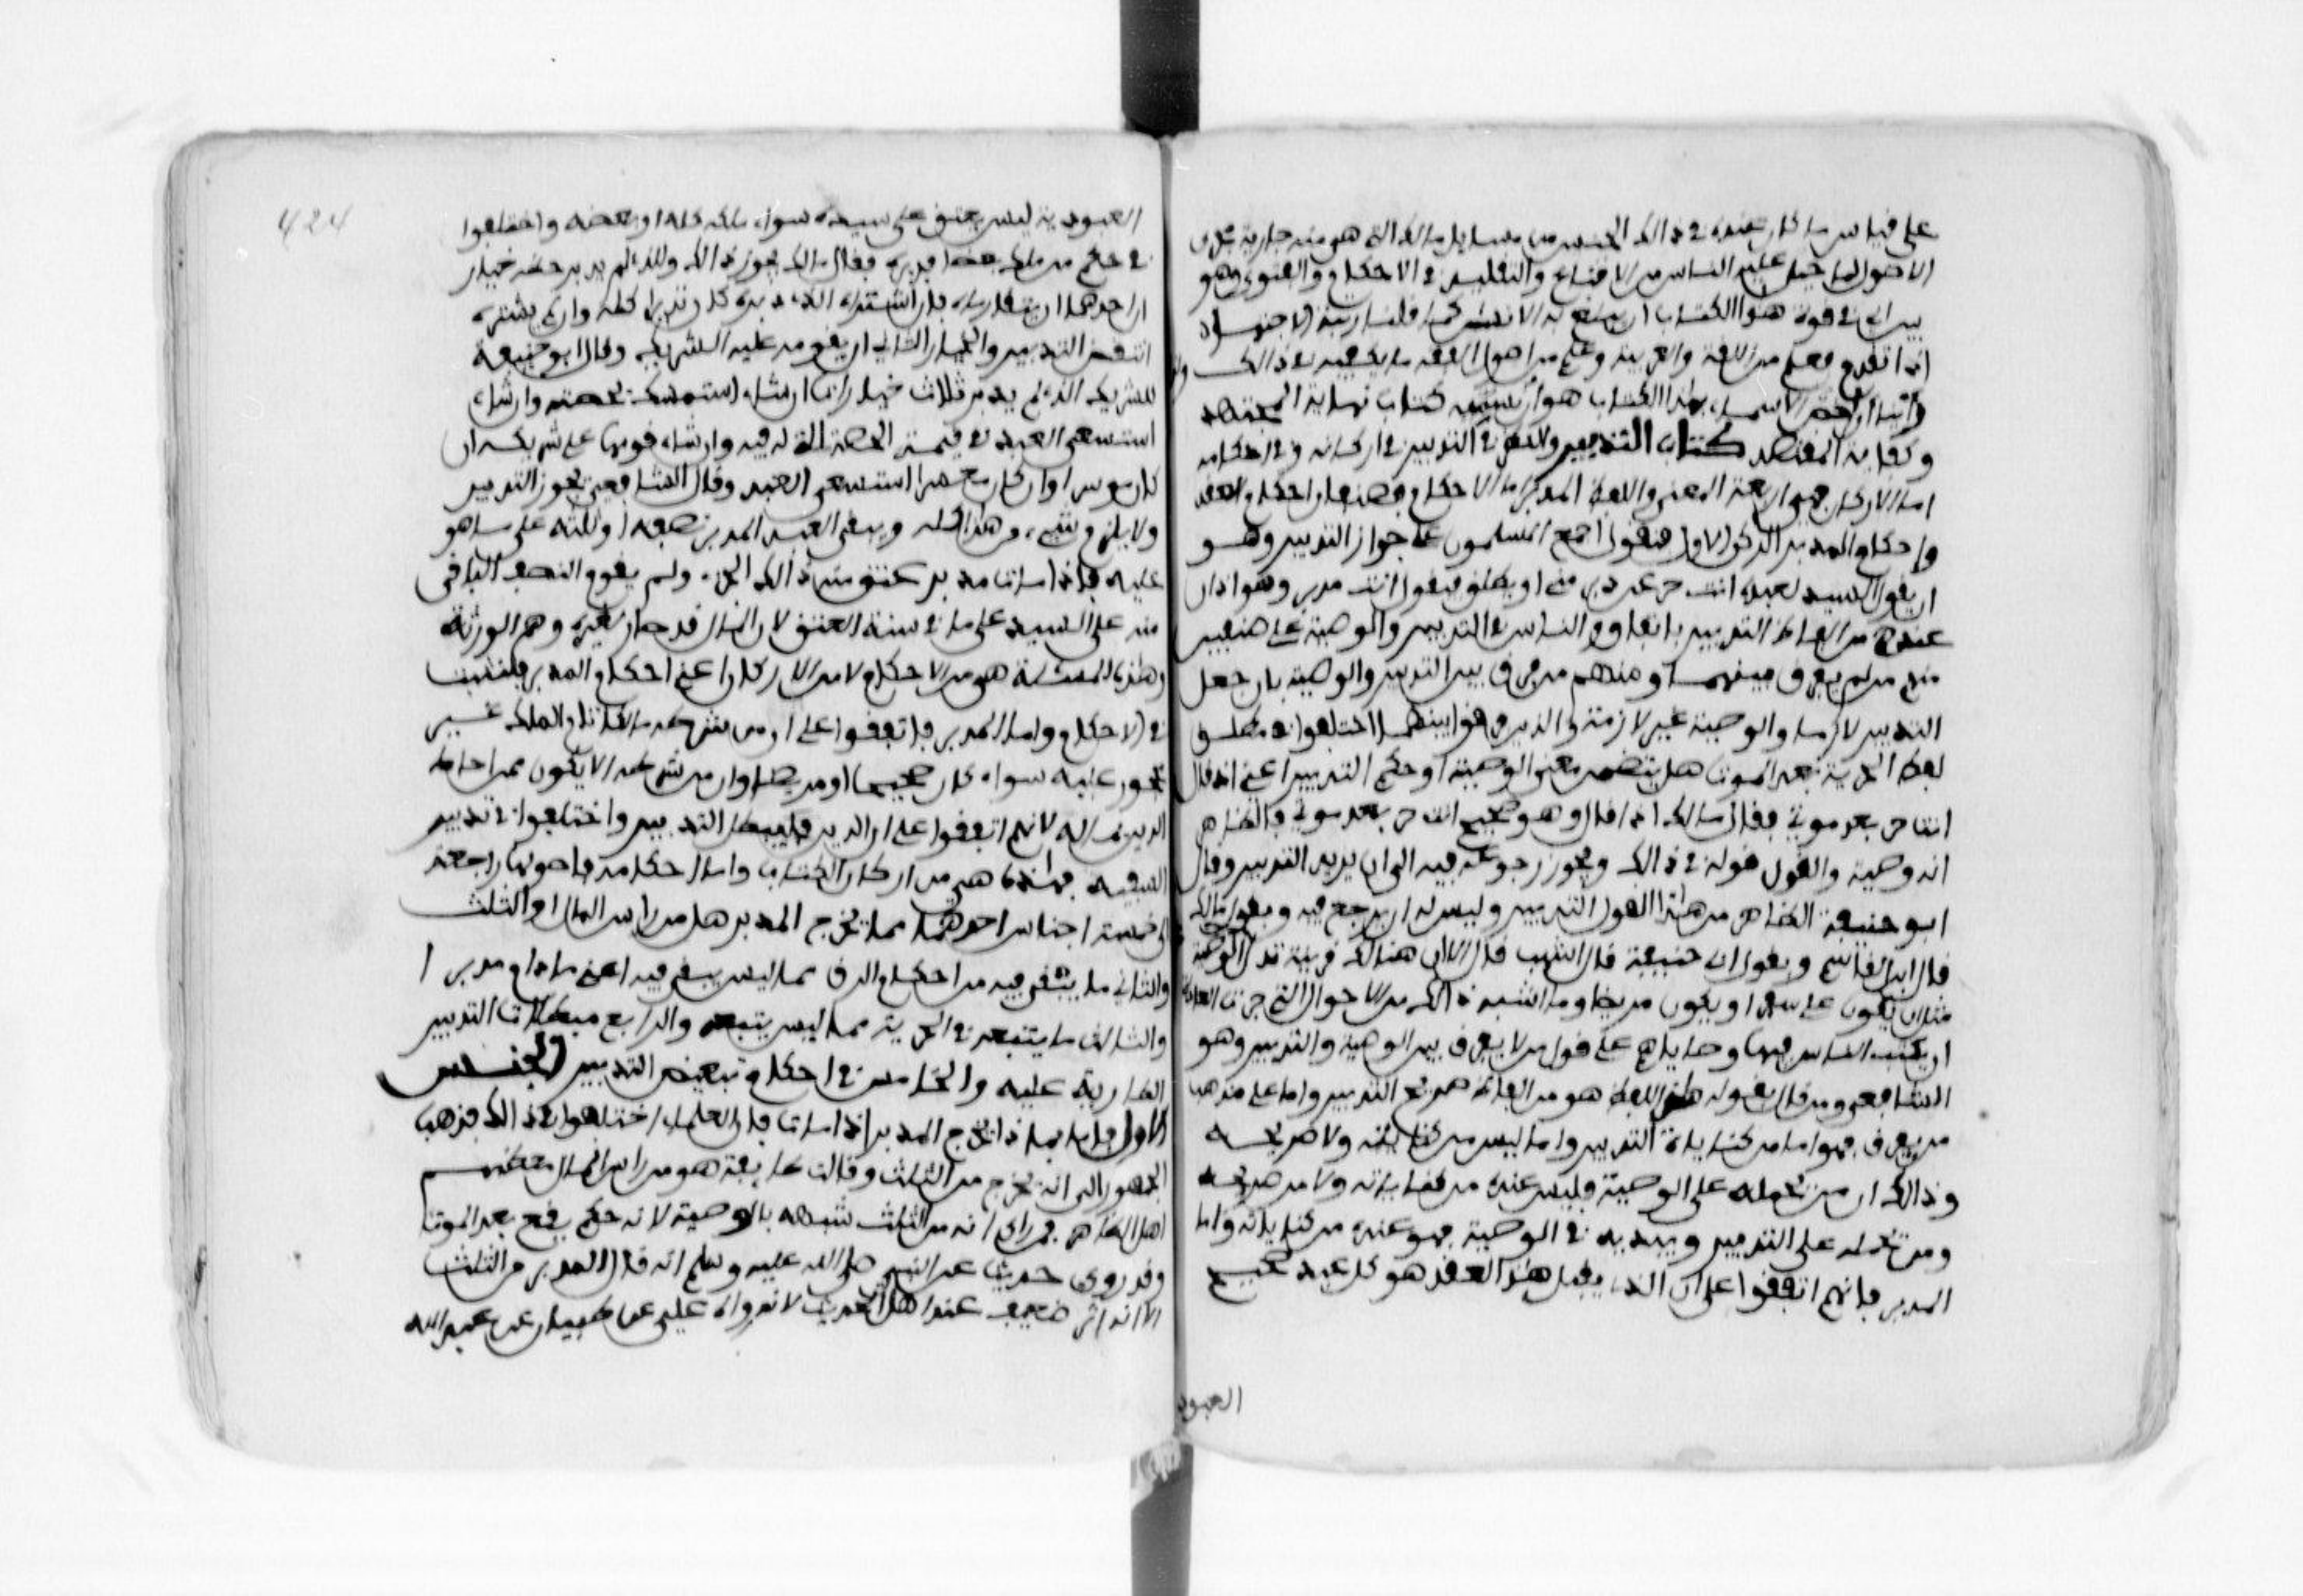 على قياس ما كان عنده في ذالك الجنس من مسايل مالك التي هي منه جارية مجرى
الاصول لما جبل عليه الناس من الاتباع والتقليد في الاحكام والفتوى وهو
بين ان في قوة هذا الكتاب ان يبلغ به الانسان كما قلنا رتبة الاجتهاد
اذا تقدم فعلم من اللغة والعربية وعلم من اصول الفقه ما يكفيه في ذالك
راينا ان اخص الاسماء بهذا الكتاب هو ان نسميه كتاب نهاية المجتهد
وكفاية المقتصد كتاب التدبير والنظر في التدبير في اركانه وفي احكامه
اما الاركان فهي اربعة المعنى واللفظ والمدبر اما الاحكام فصنفان احكام العقد
واحكام المدبر الركن الاول فنقول اجمع المسلمون على جواز التدبير وهو
ان يقول السيد لعبده انت حر عن دبر مني او يطلق فيقول انت مدبر وهذان
عندهم من الفاظ التدبير باتفاق والناس في التدبير والوصية على صنفين
منهم من لم يفرق بينهما ومنهم من فرق بين التدبير والوصية بان جعل
التدبير لازما والوصية غير لازمة والذين فرقوا بينهما اختلفوا في مطلق
لفظ الحرية بعد الموت هل يتضمن معنى الوصية او حكم التدبير اعني اذا قال
انت حر بعد موتي فقال مالك اذا قال وهو صحيح انت حر بعد موتي فالظاهر
انه وصية والقول قوله في ذالك ويجوز رجوعه فيه الى ان يريد التدبير وقال
ابو حنيفة الظاهر من هذا القول التدبير وليس له ان يرجع فيه وبقول مالك
قال ابن القاسم وبقول ابي حنيفة قال اشهب قال الا ان هنالك قرينة تدل الوصية
مثل ان يكون على سفر او يكون مريضا وما اشبه ذالك من الاحوال التي جرت العادة
ان يكتب الناس فيها وصاياهم على قول من لا يفرق بين الوصية والتدبير وهو
الشافعي ومن قال بقوله هذا اللفظ هو من الفاظ صريح التدبير واما على مذهب
من يفرق فهو اما من كنايات التدبير واما ليس من كناياته ولا صريحه
وذالك ان من يحمله على الوصية فليس عنده من كناياته ولا من صريحه
ومن يحمله على التدبير وينويه في الوصية فهو عنده من كناياته واما
المدبر فانهم اتفقوا على ان الذي يقبل هذا العقد هو كل عبد صحيح
العبود
424
العبودية ليس يعتق على سيده سواء ملك كله او بعضه واختلفوا
في حكم من ملك بعضا فدبره فقال مالك يجوز ذالك وللذي لم يدبر حظه خيار
ان احدهما ان يتقاوياه فان اشتراه الذي دبره كان مدبرا كله وان لم يشتره
انتقض التدبير والخيار الثاني ان يقومه عليه الشريك وقال ابو حنيفة
للشريك الذي لم يدبر ثلاث خيارات ان شاء استمسك بحصته وان شاء
استسعى العبد في قيمة الحصة التي له فيه وان شاء قومها على شريكه ان
كان موسرا وان كان معسرا استسعى العبد وقال الشافعي يجوز التدبير
ولا يلزم شيء من هذا كله ويبقى العبد المدبر نصفه او ثلثه على ما هو
عليه فاذا مات مدبره عتق منه ذالك الجزء ولم يقوم النصف الباقي
منه على السيد على ما في سنة العتق لان المال قد صار لغيره وهم الورثة
وهذه المسئلة هي من الاحكام لا من الاركان اعني احكام المدبر فلتثبت
في الاحكام واما المدبر فاتفقوا على ان من شرطه مالكا تام الملك غير
محجور عليه سواء كان صحيحا او مريضا وان من شرطه الا يكون ممن احاط
الدين بماله لانهم اتفقوا على ان الدين يبطل التدبير واختلفوا في تدبير
السفيه فهذه هي من اركان الكتاب واما احكامه فاصولها راجعة
الى خمسة اجناس احدهما مما يخرج المدبر هل من راس المال او الثلث
والثاني ما يبقى فيه من احكام الرق مما ليس يبقى فيه اعني ما دام مدبرا
والثالث ما يتبعه في الحرية مما ليس يتبعه والرابع مبطلات التدبير
الطارية عليه والخامس في احكام تبعيض التدبير الجنس
الاول فاما بماذا يخرج المدبر اذا مات فان العلماء اختلفوا في ذالك فذهب
الجمهور الى انه يخرج من الثلث وقالت طايفة هو من راس المال معظمهم
اهل الظاهر فمن راى انه من الثلث شبهه بالوصية لانه حكم يقع بعد الموت
وقد روي حديث عن النبي صلى الله عليه وسلم انه قال المدبر من الثلث
الا انه اثر ضعيف عند اهل الحديث لانه رواه علي عن ظبيان عن عبيد الله